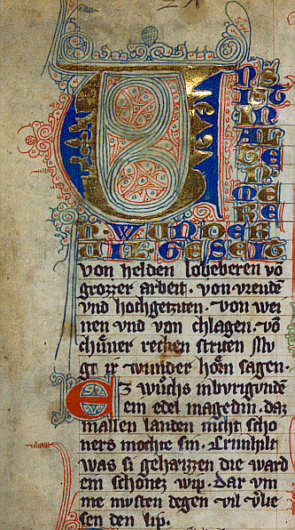 UNS
IST
IN
AL
TE
N ME
RE
N. WUNDER
VIL GESEIT
von helden lobeberen võ
grozzer arbeit. von vreude
vnd hochgeziten. von wei
nen vnd von chlagen. võ
chůner recken striten Mu
gt ir wunder hörn sagen.
Ez wůchs inburgunde
ein edel magedin. daz
in allen landen nicht scho
ners mochte sin. Crimhilt
was si geheizzen die ward
ein schönez wip. Dar vm
me mvsten degen vil vlie
sen den lip.